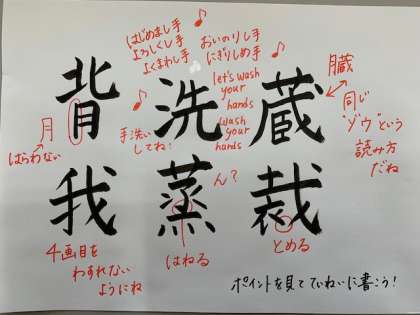 はじめまし手
よろしくし手
よくまわし手
おいのりし手
にぎりしめ手
let's wash
your
hands
wash
your
hands
背
洗
蔵
月
はらわない
手洗い
してね!
臓
同じ
"ゾウ"という
読み方
だね
我
蒸
裁
ん?
4画目を
わすれない
ようにね
はねる
とめる
ポイントを見てていねいに書こう!